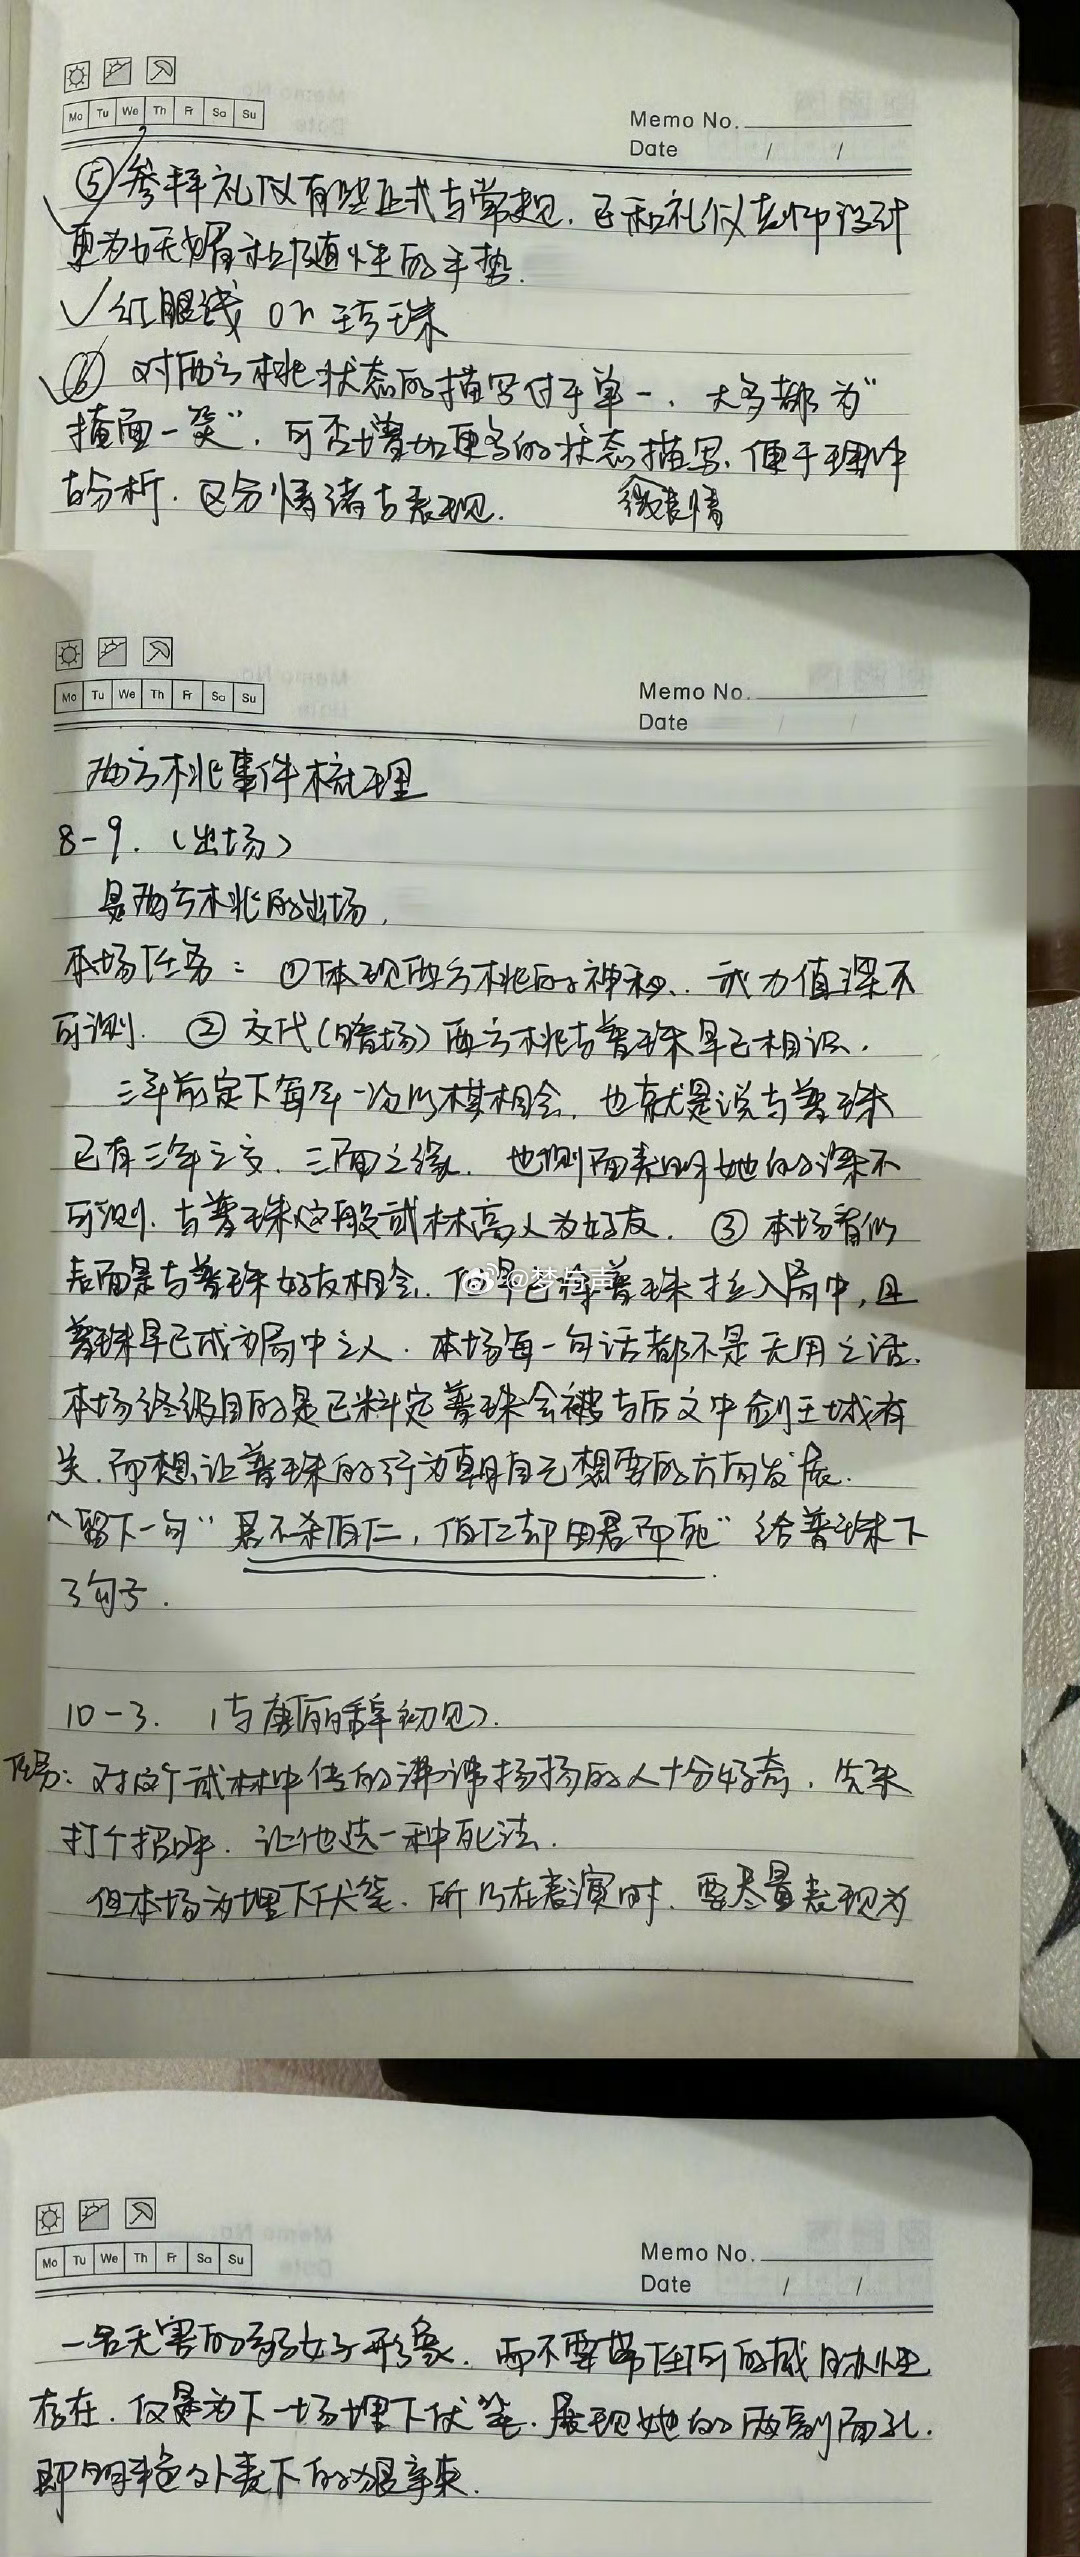 Mo Tu We Th Fr Sa Su
Memo No.
Date / /
⑤参拜礼仪有些正式与常规，已和礼仪老师设计
更为妩媚和随性的手势.
√红眼线 or 珍珠
⑥ 对西方桃状态的描写过于单一、大多都为“
掩面一笑”，可否增加更多的状态描写、便于理解
与分析.区分情绪与表现.
微表情
Mo Tu We Th Fr Sa Su
Memo No.
Date / /
西方桃事件梳理
8-9.（出场）
是西方桃的出场.
本场任务：①体现西方桃的神秘、武力值深不
可测. ②交代（暗场）西方桃与普珠早已相识.
三年前定下每年一次以棋相会，也就是说与普珠
已有三年之交、三面之缘.也侧面表明她的深不
可测.与普珠这般武林高人为好友. ③本场看似
表面是与普珠好友相会.但早已将普珠拉入局中,且
普珠早已成为局中之人.本场每一句话都不是无用之话.
@梦与声
本场终级目的是已料定普珠会被与后文中剑王城有
关.而想让普珠的行为朝自己想要的方向发展.
留下一句“君不杀伯仁，伯仁却因君而死”给普珠下
了句子.
10-3.（与唐俪辞初见）.
任务：对这个武林中传的沸沸扬扬的人十分好奇，先来
打个招呼.让他选一种死法.
但本场为埋下伏笔.所以在表演时.要尽量表现为
Mo Tu We Th Fr Sa Su
Memo No.
Date / /
一名无害的弱女子形象.而不要带任何的威胁性
存在.仅是为下一场埋下伏笔.展现她的两副面孔.
即明艳外表下的狠辣.